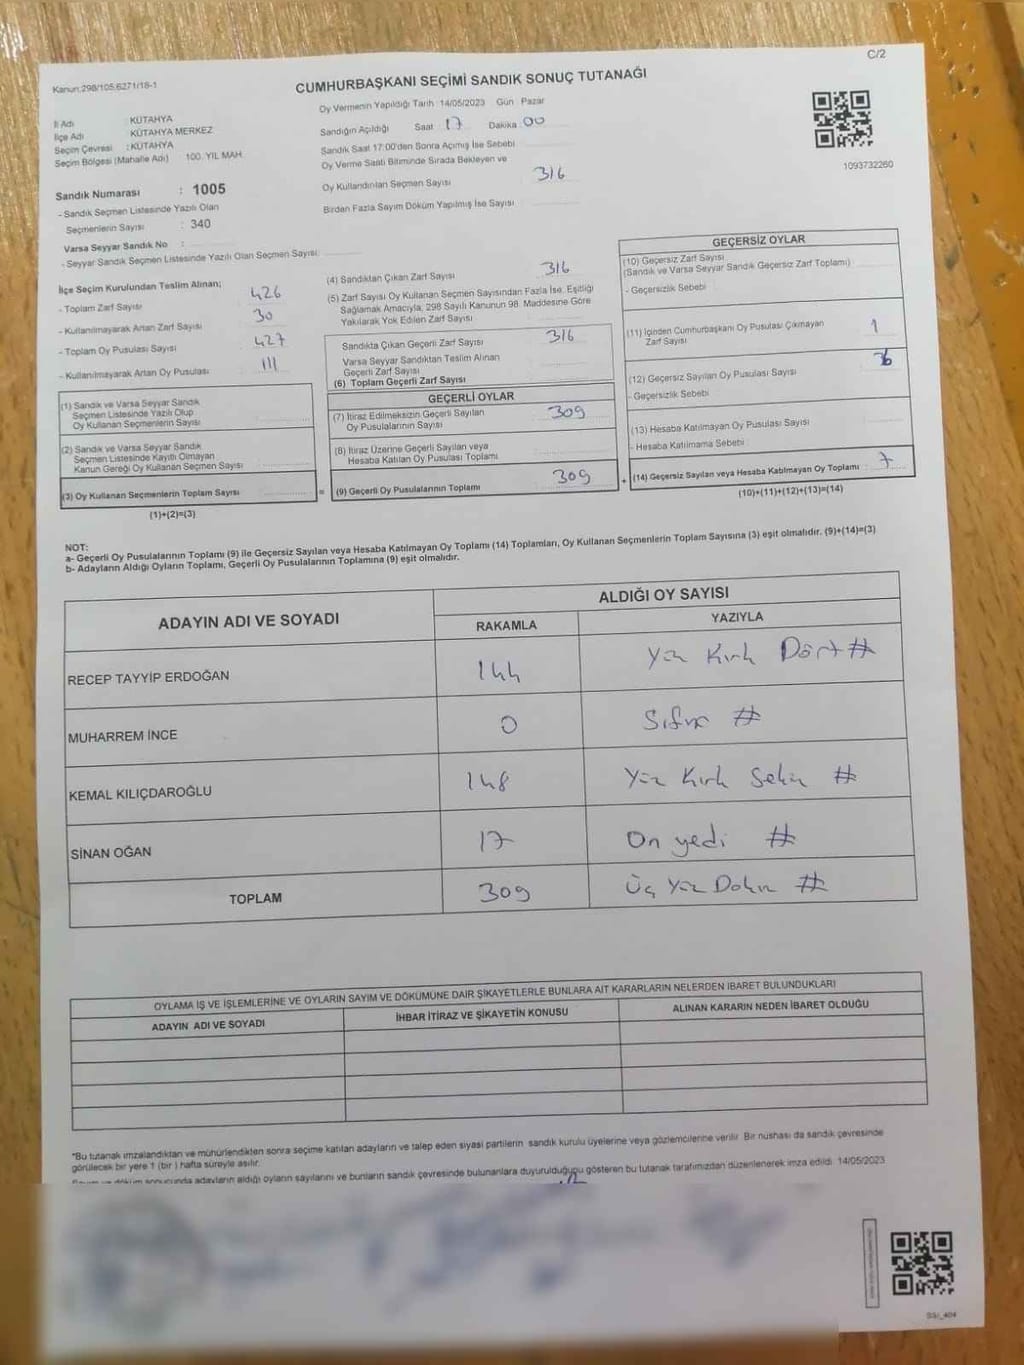 C/2
Kanun:298/105,6271/18-1
CUMHURBAŞKANI SEÇİMİ SANDIK SONUÇ TUTANAĞI
Oy Vermenin Yapıldığı Tarih :14/05/2023 Gün Pazar
İl Adı : KÜTAHYA
İlçe Adı : KÜTAHYA MERKEZ
Seçim Çevresi : KÜTAHYA
Seçim Bölgesi (Mahalle Adı) 100. YIL MAH.
Sandığın Açıldığı Saat : 17 Dakika : 00
Sandık Saat 17:00'den Sonra Açılmış İse Sebebi
Oy Verme Saati Bitiminde Sırada Bekleyen ve
Oy Kullandırılan Seçmen Sayısı 316
Birden Fazla Sayım Döküm Yapılmış İse Sayısı
1093732260
Sandık Numarası : 1005
- Sandık Seçmen Listesinde Yazılı Olan
Seçmenlerin Sayısı : 340
Varsa Seyyar Sandık No :
- Seyyar Sandık Seçmen Listesinde Yazılı Olan Seçmen Sayısı:
İlçe Seçim Kurulundan Teslim Alınan;
- Toplam Zarf Sayısı 426
- Kullanılmayarak Artan Zarf Sayısı 30
- Toplam Oy Pusulası Sayısı 427
- Kullanılmayarak Artan Oy Pusulası 111
(1) Sandık ve Varsa Seyyar Sandık
Seçmen Listesinde Yazılı Olup
Oy Kullanan Seçmenlerin Sayısı
(2) Sandık ve Varsa Seyyar Sandık
Seçmen Listesinde Kayıtlı Olmayan
Kanun Gereği Oy Kullanan Seçmen Sayısı
(3) Oy Kullanan Seçmenlerin Toplam Sayısı =
(1)+(2)=(3)
(4) Sandıktan Çıkan Zarf Sayısı 316
(5) Zarf Sayısı Oy Kullanan Seçmen Sayısından Fazla İse, Eşitliği
Sağlamak Amacıyla, 298 Sayılı Kanunun 98. Maddesine Göre
Yakılarak Yok Edilen Zarf Sayısı
Sandıkta Çıkan Geçerli Zarf Sayısı 316
Varsa Seyyar Sandıktan Teslim Alınan
Geçerli Zarf Sayısı
(6) Toplam Geçerli Zarf Sayısı
GEÇERLİ OYLAR
(7) İtiraz Edilmeksizin Geçerli Sayılan
Oy Pusulalarının Sayısı 309
(8) İtiraz Üzerine Geçerli Sayılan veya
Hesaba Katılan Oy Pusulası Toplamı
(9) Geçerli Oy Pusulalarının Toplamı 309 +
GEÇERSİZ OYLAR
(10) Geçersiz Zarf Sayısı
(Sandık ve Varsa Seyyar Sandık Geçersiz Zarf Toplamı)
- Geçersizlik Sebebi
(11) İçinden Cumhurbaşkanı Oy Pusulası Çıkmayan
Zarf Sayısı 1
(12) Geçersiz Sayılan Oy Pusulası Sayısı
- Geçersizlik Sebebi
(13) Hesaba Katılmayan Oy Pusulası Sayısı
- Hesaba Katılmama Sebebi
(14) Geçersiz Sayılan veya Hesaba Katılmayan Oy Toplamı 7
(10)+(11)+(12)+(13)=(14)
NOT:
a- Geçerli Oy Pusulalarının Toplamı (9) ile Geçersiz Sayılan veya Hesaba Katılmayan Oy Toplamı (14) Toplamları, Oy Kullanan Seçmenlerin Toplam Sayısına (3) eşit olmalıdır. (9)+(14)=(3)
b- Adayların Aldığı Oyların Toplamı, Geçerli Oy Pusulalarının Toplamına (9) eşit olmalıdır.
ADAYIN ADI VE SOYADI ALDIĞI OY SAYISI
RAKAMLA YAZIYLA
RECEP TAYYİP ERDOĞAN 144 Yüz Kırk Dört #
MUHARREM İNCE 0 Sıfır #
KEMAL KILIÇDAROĞLU 148 Yüz Kırk Sekiz #
SİNAN OĞAN 17 On yedi #
TOPLAM 309 Üç Yüz Dokuz #
OYLAMA İŞ VE İŞLEMLERİNE VE OYLARIN SAYIM VE DÖKÜMÜNE DAİR ŞİKAYETLERLE BUNLARA AİT KARARLARIN NELERDEN İBARET BULUNDUKLARI
ADAYIN ADI VE SOYADI İHBAR İTİRAZ VE ŞİKAYETİN KONUSU ALINAN KARARIN NEDEN İBARET OLDUĞU
*Bu tutanak imzalandıktan ve mühürlendikten sonra seçime katılan adayların ve talep eden siyasi partilerin sandık kurulu üyelerine veya gözlemcilerine verilir. Bir nüshası da sandık çevresinde
görülecek bir yere 1 (bir ) hafta süreyle asılır.
Sayım ve döküm sonucunda adayların aldığı oyların sayılarını ve bunların sandık çevresinde bulunanlara duyurulduğunu gösteren bu tutanak tarafımızdan düzenlenerek imza edildi. 14/05/2023